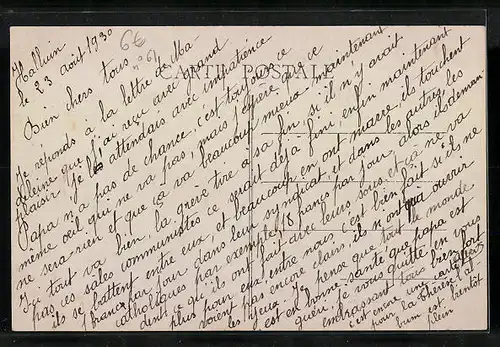 Halluin
le 23 août 1930
66
n° 6
CARTE POSTALE
Bien chers tous
Je réponds à la lettre de Ma-
deleine que j'ai reçu avec grand
plaisir je les attendais avec impatience
Papa n'a pas de chance, c'est toujours ce
même oeil qui ne va pas, mais j'espère que ce
ne sera rien et que ça va beaucoup mieux maintenant
Ici tout va bien, la grève tire à sa fin, si il n'y avait
pas ces sales communistes ce serait déjà fini enfin maintenant
ils se battent entre eux, et beaucoup en ont marre, ils touchent
francs par jour dans leur syndicat et dans les autres, les
catholiques par exemple, 18 francs par jour, alors ils deman-
dent ce qu'ils ont fait avec leurs sous et ça ne va
plus pour eux entre nous, c'est bien fait si ils ne
voient pas encore clair, ils n'ont qu'à ouvrir
les yeux. Je pense que tout le monde
est en bonne santé que papa est
guéri, je vous quitte en vous
embrassant tous bien fort
c'est encore une carte
pour la
bum est bientôt
plein